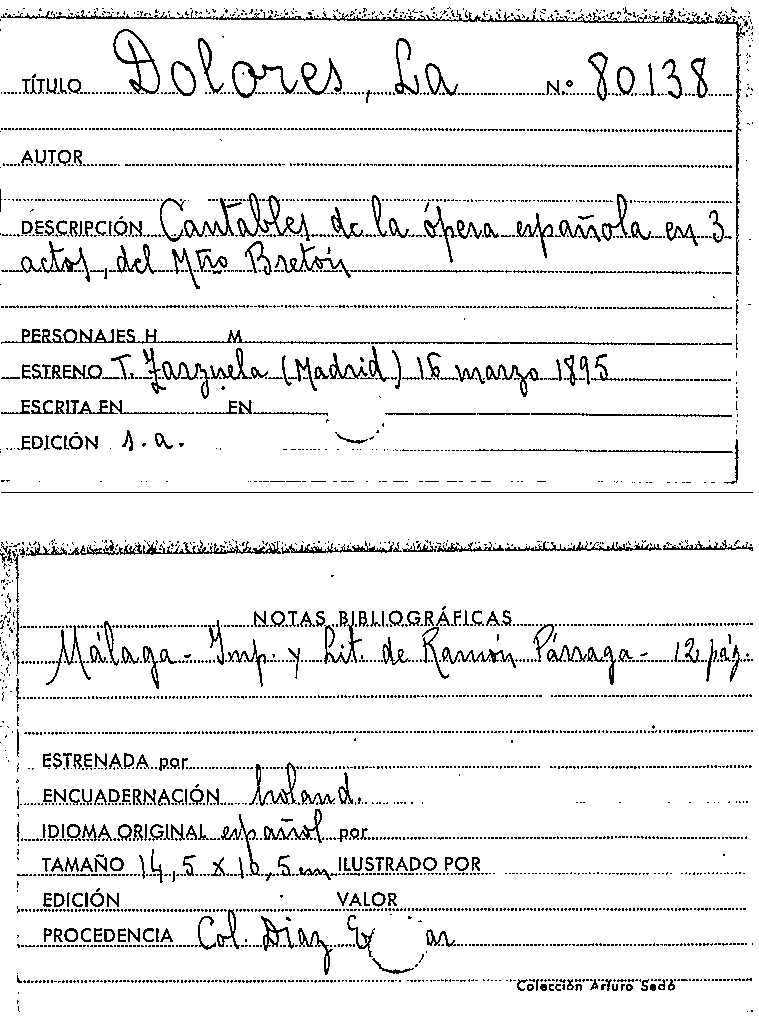 TÍTULO Dolores, La N.º 80138
AUTOR
DESCRIPCIÓN Cantables de la ópera española en 3
actos, del Mtro Bretón
PERSONAJES H M
ESTRENO T. Zarzuela (Madrid) 16 marzo 1895
ESCRITA EN EN
EDICIÓN s.a.
NOTAS BIBLIOGRÁFICAS
Málaga - Imp. y Lit. de Ramón Párraga - 12 pág.
ESTRENADA por
ENCUADERNACIÓN holand.
IDIOMA ORIGINAL español por
TAMAÑO 14,5 x 10,5 cm ILUSTRADO POR
EDICIÓN VALOR
PROCEDENCIA Col. Diaz
Colección Arturo Sedó